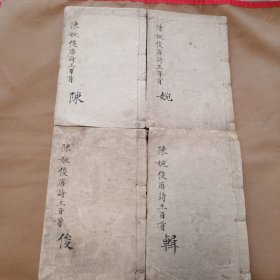 陳婉俊唐詩三百首
陳
陳婉俊唐詩三百首
婉
陳婉俊唐詩三百首
俊
陳婉俊唐詩三百首
輯